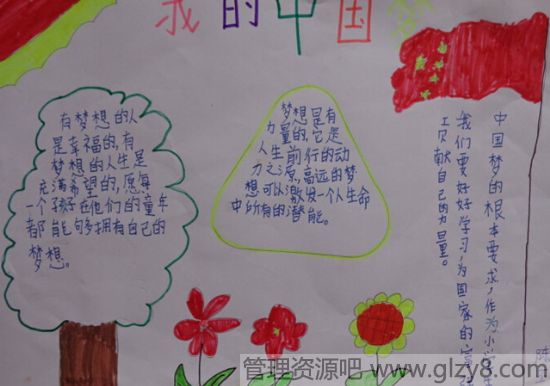 我的中国
有梦想的人
是幸福的,有
梦想的人生是
充满希望的,愿每
一个孩子在他们的童年
都能够多拥有自己的
梦想。
梦想是有
力量的,它是
人生前行的动
力之源,高远的梦
想可以激发一个人生命
中所有的潜能。
中国梦的根本要求,作为小
我们要好好学习,为国家的富
贡献自己的力量。
管理资源吧 www.glzy8.com